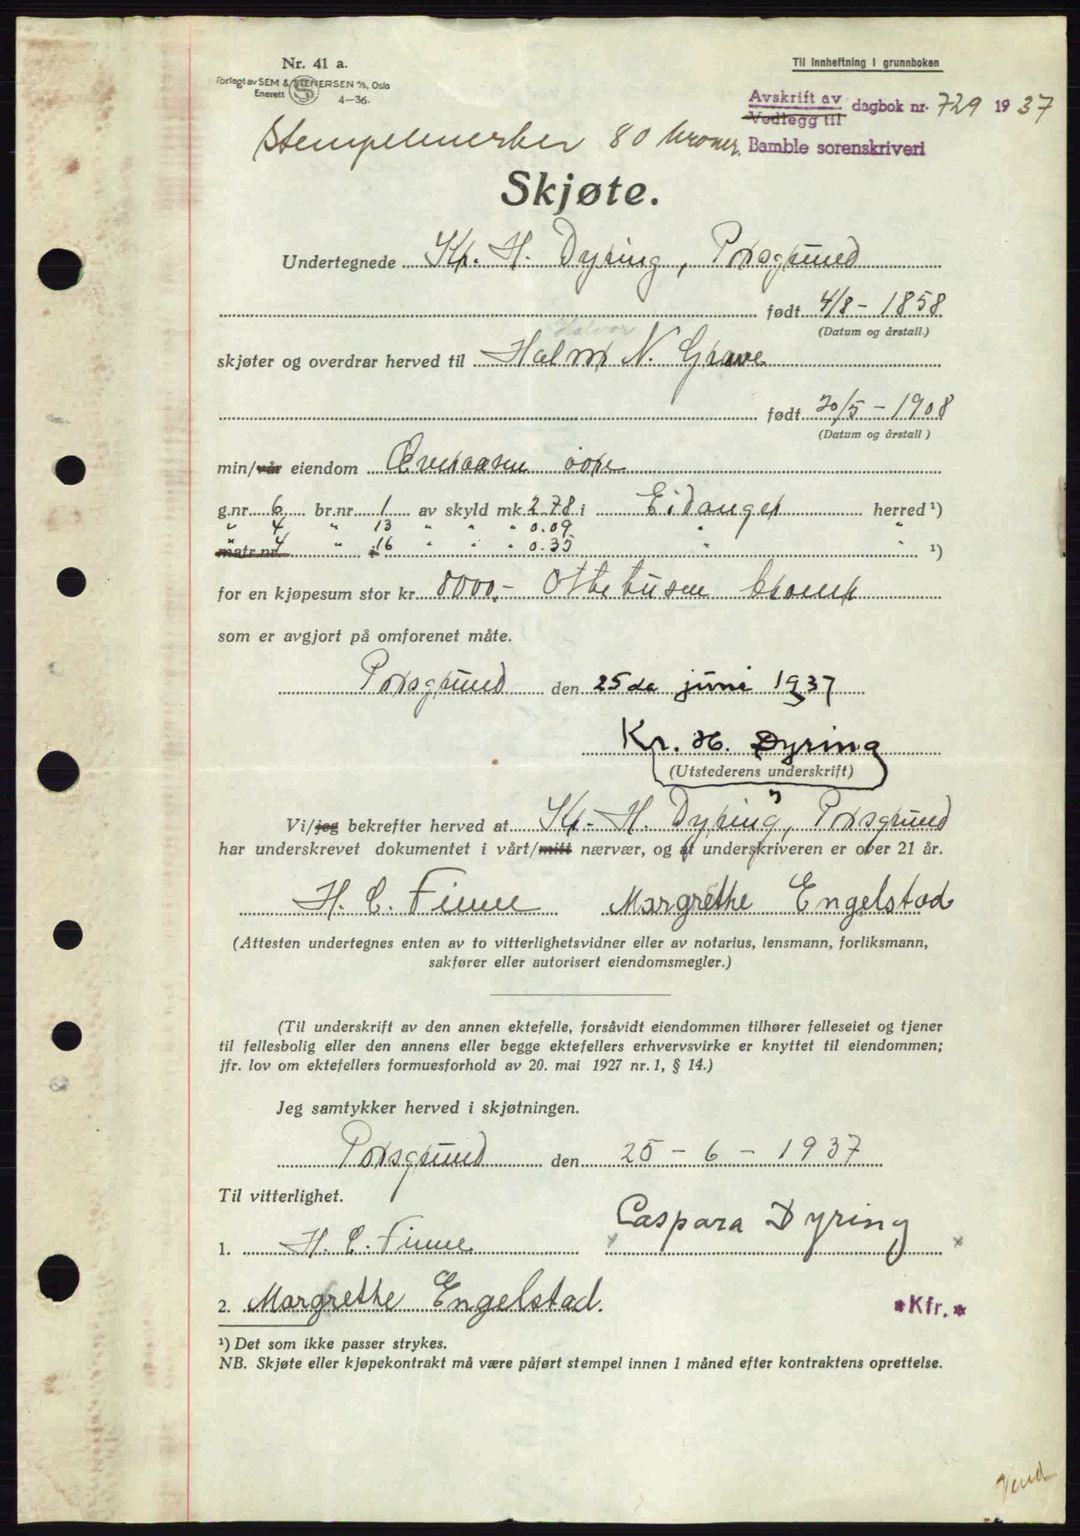 Nr. 41 a.
Forlagt av SEM & STENERSEN A/S, Oslo
Enerett 4—36.
Til innheftning i grunnboken
Avskrift av
Vedlegg til
dagbok nr. 729 1937
Bamble sorenskriveri
Stempelmerker 80 kroner.
Skjøte.
Undertegnede Kr. H. Dyring, Porsgrund
født 4/8 - 1858
(Datum og årstall.)
Halvor
skjøter og overdrar herved til Halvor N. Grave
født 20/5 - 1908
(Datum og årstall)
min/vår eiendom
g.nr. 6 br.nr. 1 av skyld mk. 2.78 i Eidanger herred ¹)
" 4 " 13 " " " 0.09 " "
matr.nr. 4 " i 16 " " " 0.35 " " ¹)
for en kjøpesum stor kr. 8000,- Ottetusen kroner
som er avgjort på omforenet måte.
Porsgrund den 25de juni 1937
Kr. H. Dyring
(Utstederens underskrift)
Vi/jeg bekrefter herved at Kr. H. Dyring, Porsgrund
har underskrevet dokumentet i vårt/mitt nærvær, og at underskriveren er over 21 år.
H. C. Finne Margrethe Engelstad
(Attesten undertegnes enten av to vitterlighetsvidner eller av notarius, lensmann, forliksmann,
sakfører eller autorisert eiendomsmegler.)
(Til underskrift av den annen ektefelle, forsåvidt eiendommen tilhører felleseiet og tjener
til fellesbolig eller den annens eller begge ektefellers erhvervsvirke er knyttet til eiendommen;
jfr. lov om ektefellers formuesforhold av 20. mai 1927 nr. 1, § 14.)
Jeg samtykker herved i skjøtningen.
Porsgrund den 25 - 6 - 1937
Til vitterlighet.
Caspara Dyring
1. H. C. Finne
2. Margrethe Engelstad.
*Kfr.*
¹) Det som ikke passer strykes.
NB. Skjøte eller kjøpekontrakt må være påført stempel innen 1 måned efter kontraktens oprettelse.
Vend